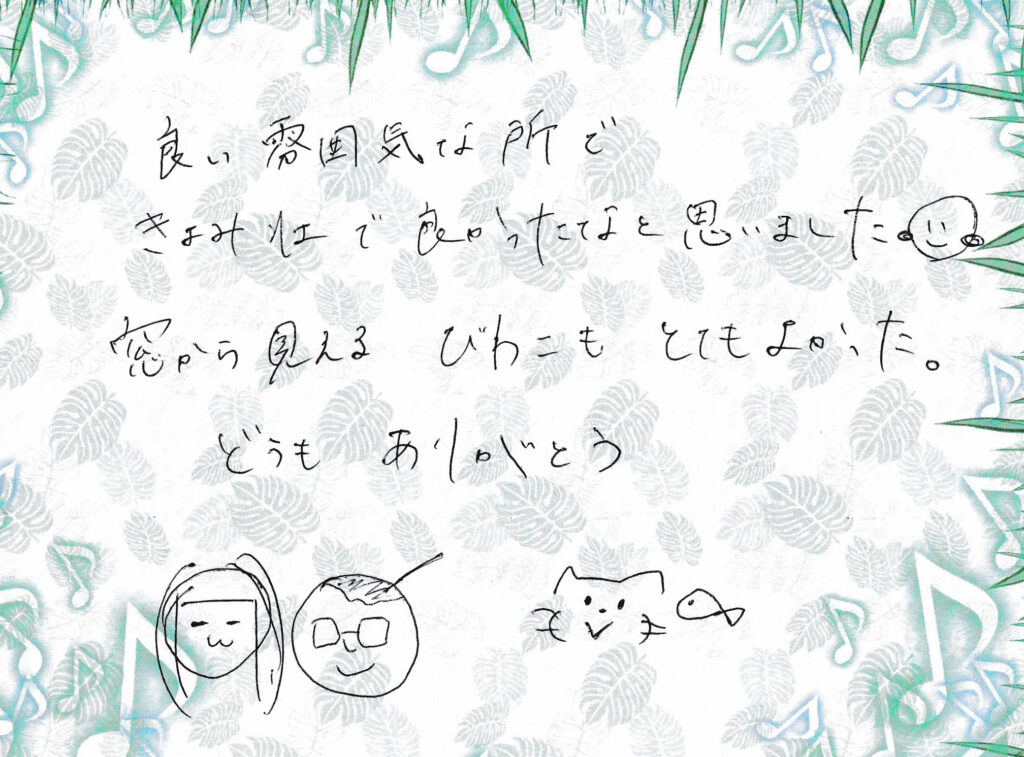 良い雰囲気な所で
きよみ壮で良かったなと思いました。
窓から見える びわこも とてもよかった。
どうも ありがとう